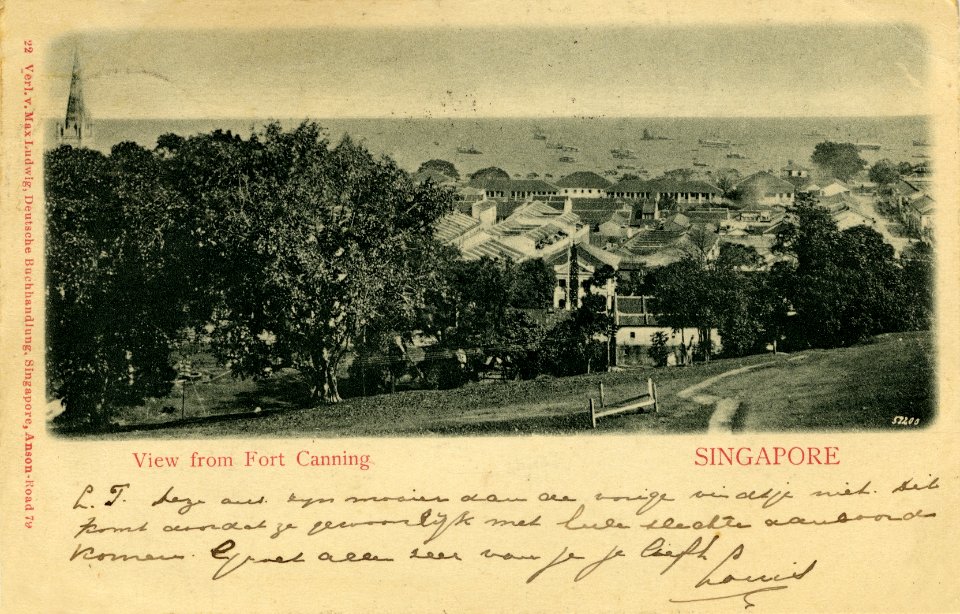 22 Verl. v. Max Ludwig, Deutsche Buchhandlung, Singapore, Anson-Road 79
51200
View from Fort Canning.
SINGAPORE
L. T. Deze zijn mooier dan de vorige vindtje niet. Dit
komt doordat ze gewoonlijk met hele slechte aanboord
komen. Groet allen zeer van je je liefh
Louis